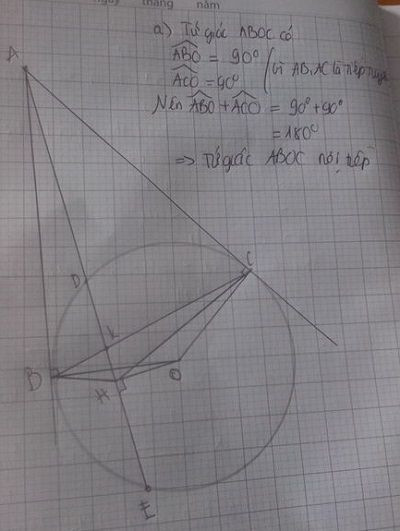 ngày tháng năm
a) Tứ giác ABOC có
ABO = 90°
ACO = 90° (vì AB, AC là tiếp tuyến
Nên ABO + ACO = 90° + 90°
= 180°
=> Tứ giác ABOC nội tiếp
A
C
D
K
B
O
H
E